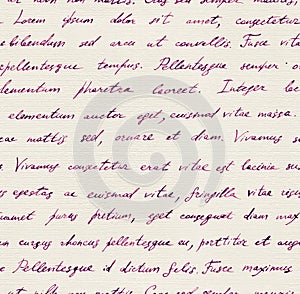 Lorem ipsum dolor sit amet, consectetur
bibendum sed arcu ut convallis. Fusce vita
pellentesque tempus. Pellentesque semper
elementum pharetra laoreet. Integer lac
elementum auctor eget, euismod vitae massa.
mattis sed, ornare et diam. Vivamus su
Vivamus consectetur erat vitae est lacinia su
egestas ac euismod vitae, fringilla vitae risu
purus pretium, eget consequat diam max
cursus rhoncus pellentesque eu, porttitor et augu
Pellentesque id dictum felis. Fusce maximus